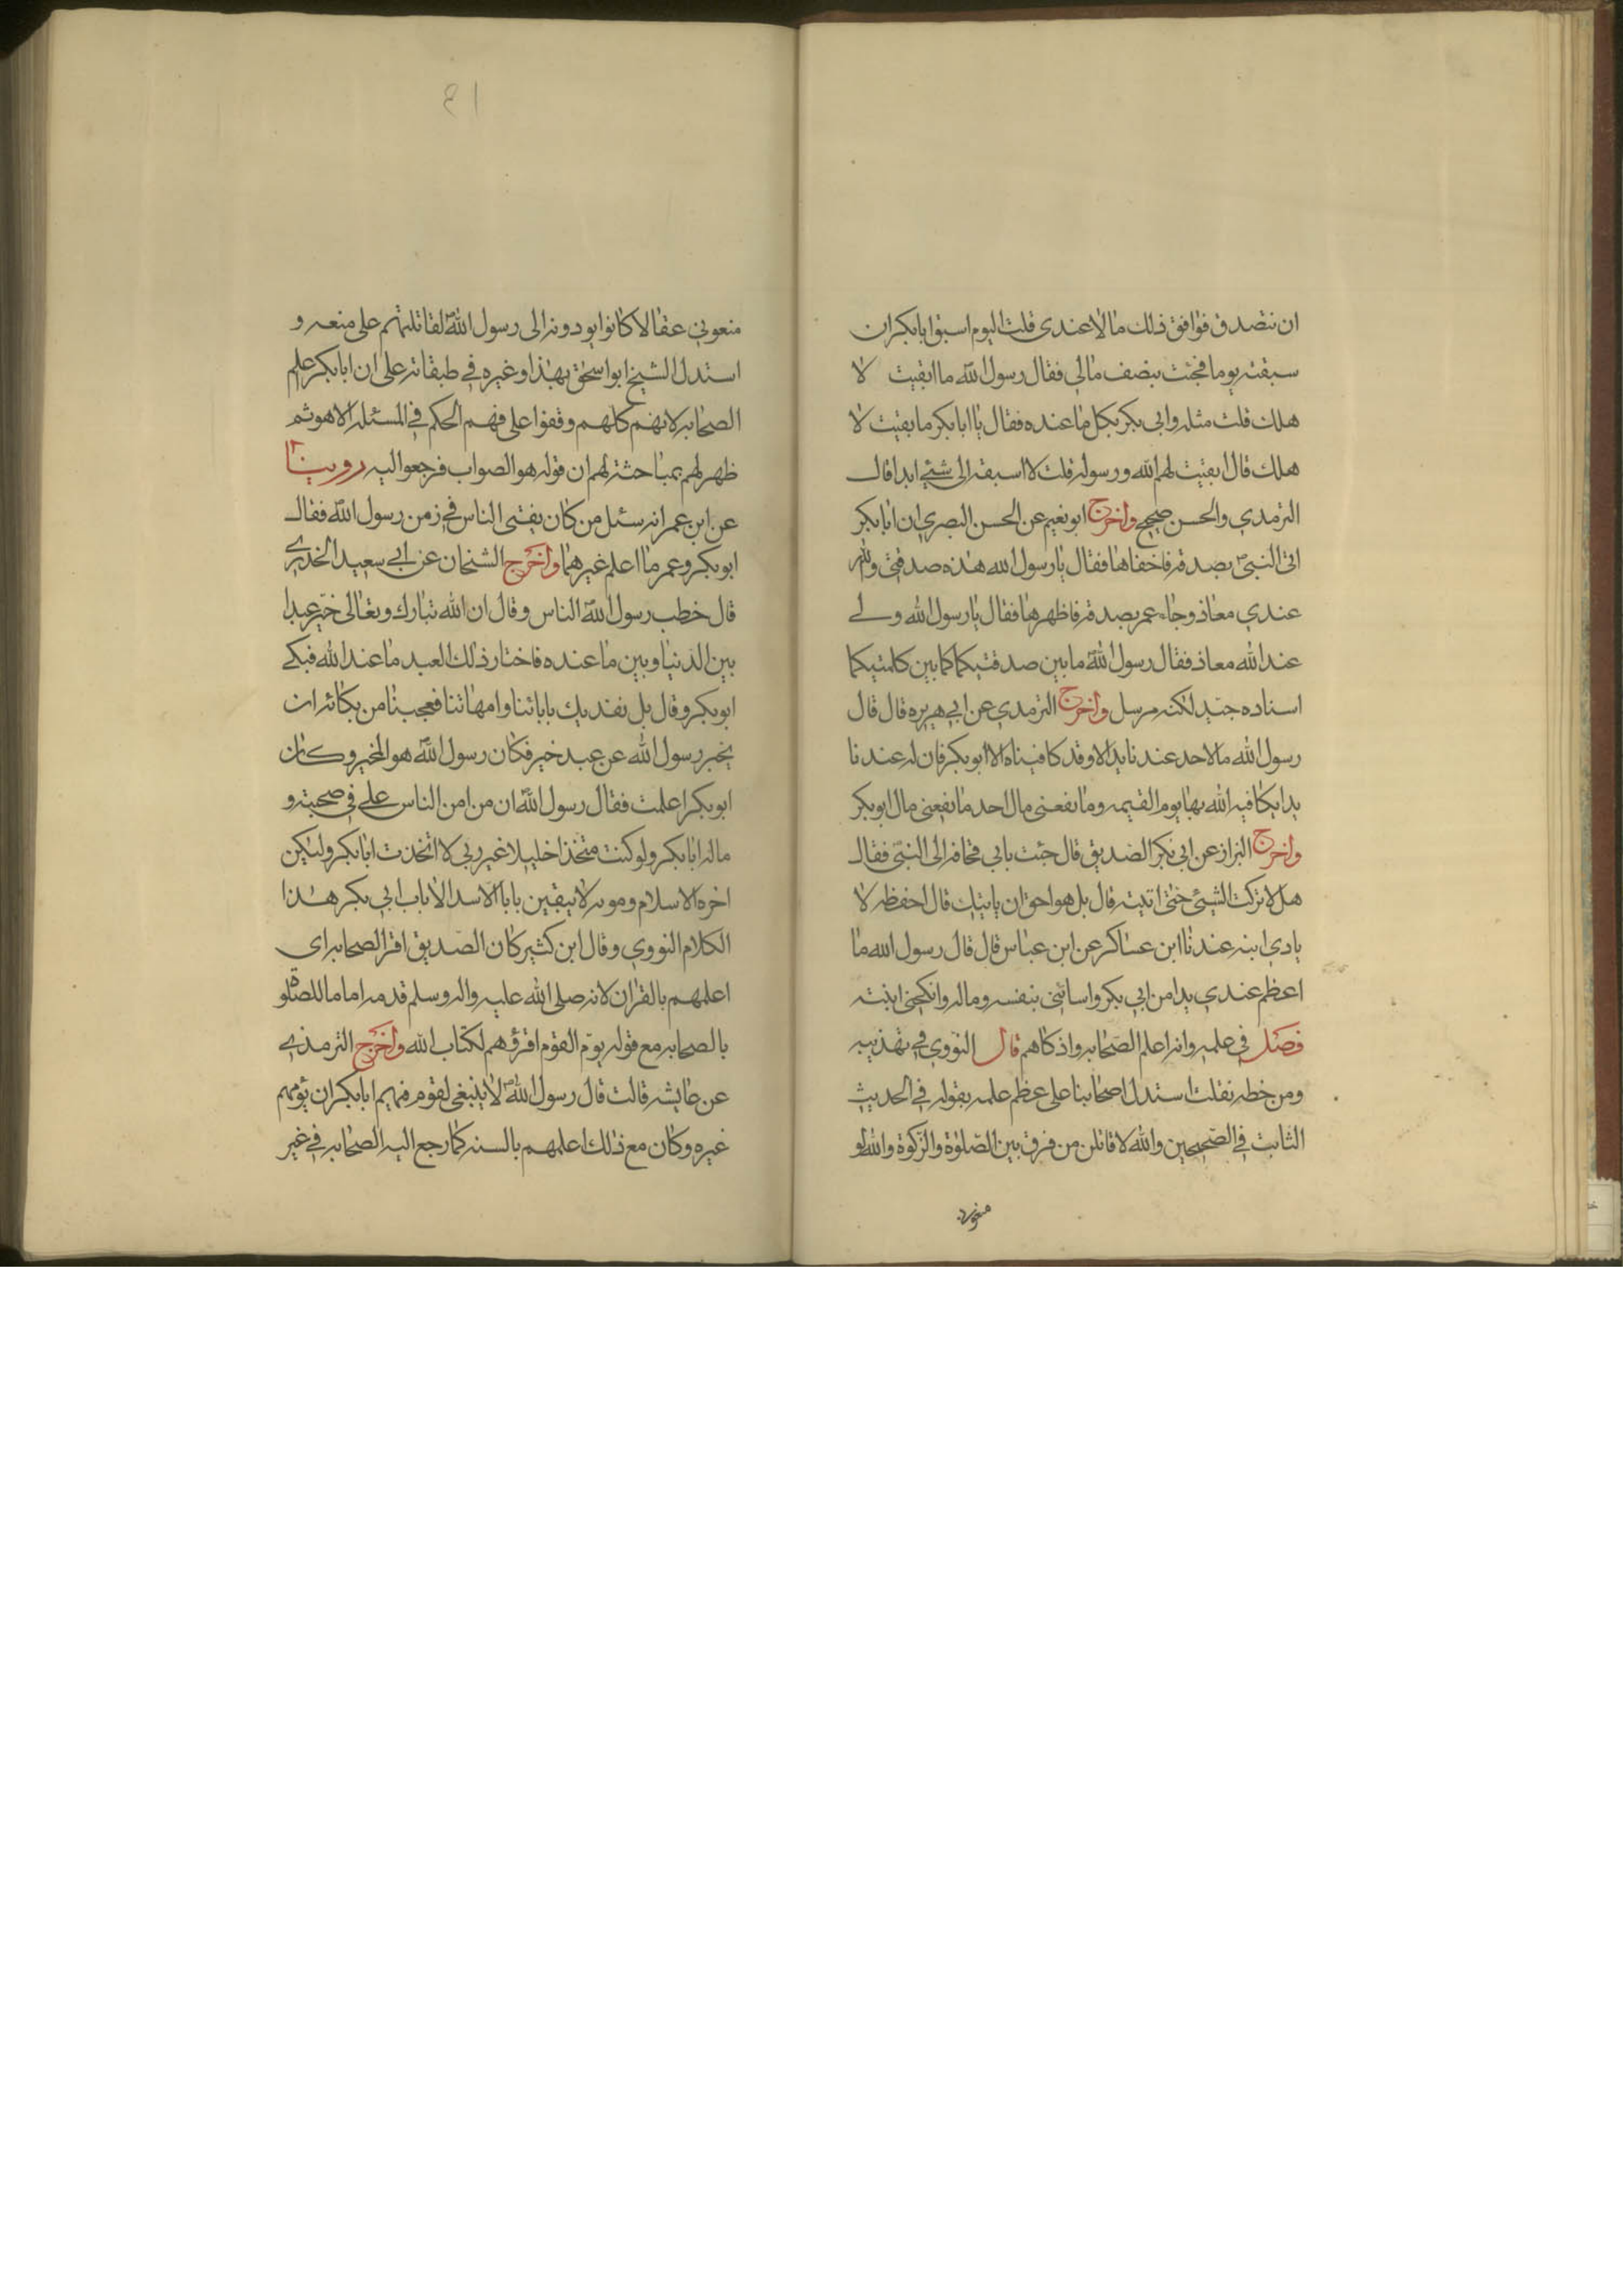 ان نتصدق فوافق ذلك مالا عندى قلت اليوم اسبق ابابكر ان
سبقته يوما فجئت بنصف مالى فقال رسول الله ما ابقيت لا
هلك قلت مثله وابى بكر بكل ما عنده فقال يا ابابكر ما بقيت لا
هلك قال ابقيت لهم الله ورسوله قلت لا اسبقه الى شئي ابدا قال
الترمدي والحسن صحيح واخرج ابو نعيم عن الحسن البصري ان ابابكر
اتى النبى بصدقه فاخفاها فقال يا رسول الله هذه صدقتى ولله
عندي معاذ وجاء عمر بصدقه فاظهرها فقال يا رسول الله ولے
عند الله معاذ فقال رسول الله ما بين صدقتيكما كما بين كلمتيكما
اسناده جيد لكنه مرسل واخرج الترمدي عن ابي هريره قال قال
رسول الله مالاحد عندنا يد الا وقد كافيناه الا ابو بكر فان له عندنا
يدا يكافيه الله بها يوم القيمه وما نفعنى مال احد ما نفعنى مال ابوبكر
واخرج البزاز عن ابى بكر الصديق قال جئت بابي قحافه الى النبى فقال
هلا تركت الشيئ حتى اتيته قال بل هو احق ان ياتيك قال احفظه لا
يادي ابنه عندنا ابن عساكر عن ابن عباس قال قال رسول الله ما
اعظم عندي يدا من ابي بكر واسائنى بنفسه وماله وانكحنى ابنته
فصل في علمه وانه اعلم الصحابه واذكاهم قال النووي في تهذيبه
ومن خطه نقلت استدل اصحابنا على عظم علمه بقوله في الحديث
الثابت في الصحيحين والله لاقاتلن من فرق بين الصلوة والزكوة والله لو
منعونى
١٤
منعوني عقالا كانوا يودونه الى رسول الله لقاتلتهم على منعه و
استدل الشيخ ابو اسحق بهذا وغيره في طبقاته على ان ابابكر علم
الصحابه لانهم كلهم وقفوا على فهم الحكم في المسئله الا هو ثم
ظهر لهم بمباحثته لهم ان قوله هو الصواب فرجعوا اليه روينا
عن ابن عمر انه سئل من كان يفتى الناس في زمن رسول الله فقال
ابو بكر وعمر ما اعلم غيرهما واخرج الشيخان عن ابي سعيد الخدري
قال خطب رسول الله الناس وقال ان الله تبارك وتعالى خير عبدا
بين الدنيا وبين ما عنده فاختار ذلك العبد ما عند الله فبكے
ابو بكر وقال بل نفديك بابائنا وامهاتنا فعجبنا من بكائه ان
يخبر رسول الله عن عبد خير فكان رسول الله هو المخير وكان
ابو بكر اعلمت فقال رسول الله ان من امن الناس علے في صحبته و
ماله ابابكر ولو كنت متخذا خليلا غير ربي لا اتخذت ابابكر ولكن
اخره الاسلام ومويه لا يبقين بابا الا سد الا باب ابي بكر هذا
الكلام النووي وقال ابن كثير كان الصديق اقرا الصحابه اى
اعلمهم بالقران لانه صلى الله عليه واله وسلم قدمه اماما للصلو
بالصحابه مع قوله يوم القوم اقرؤهم لكتاب الله واخرج الترمذے
عن عايشه قالت قال رسول الله لا ينبغى لقوم فيهم ابابكر ان يؤمهم
غيره وكان مع ذلك اعلمهم بالسنه كما رجع اليه الصحابه في غير